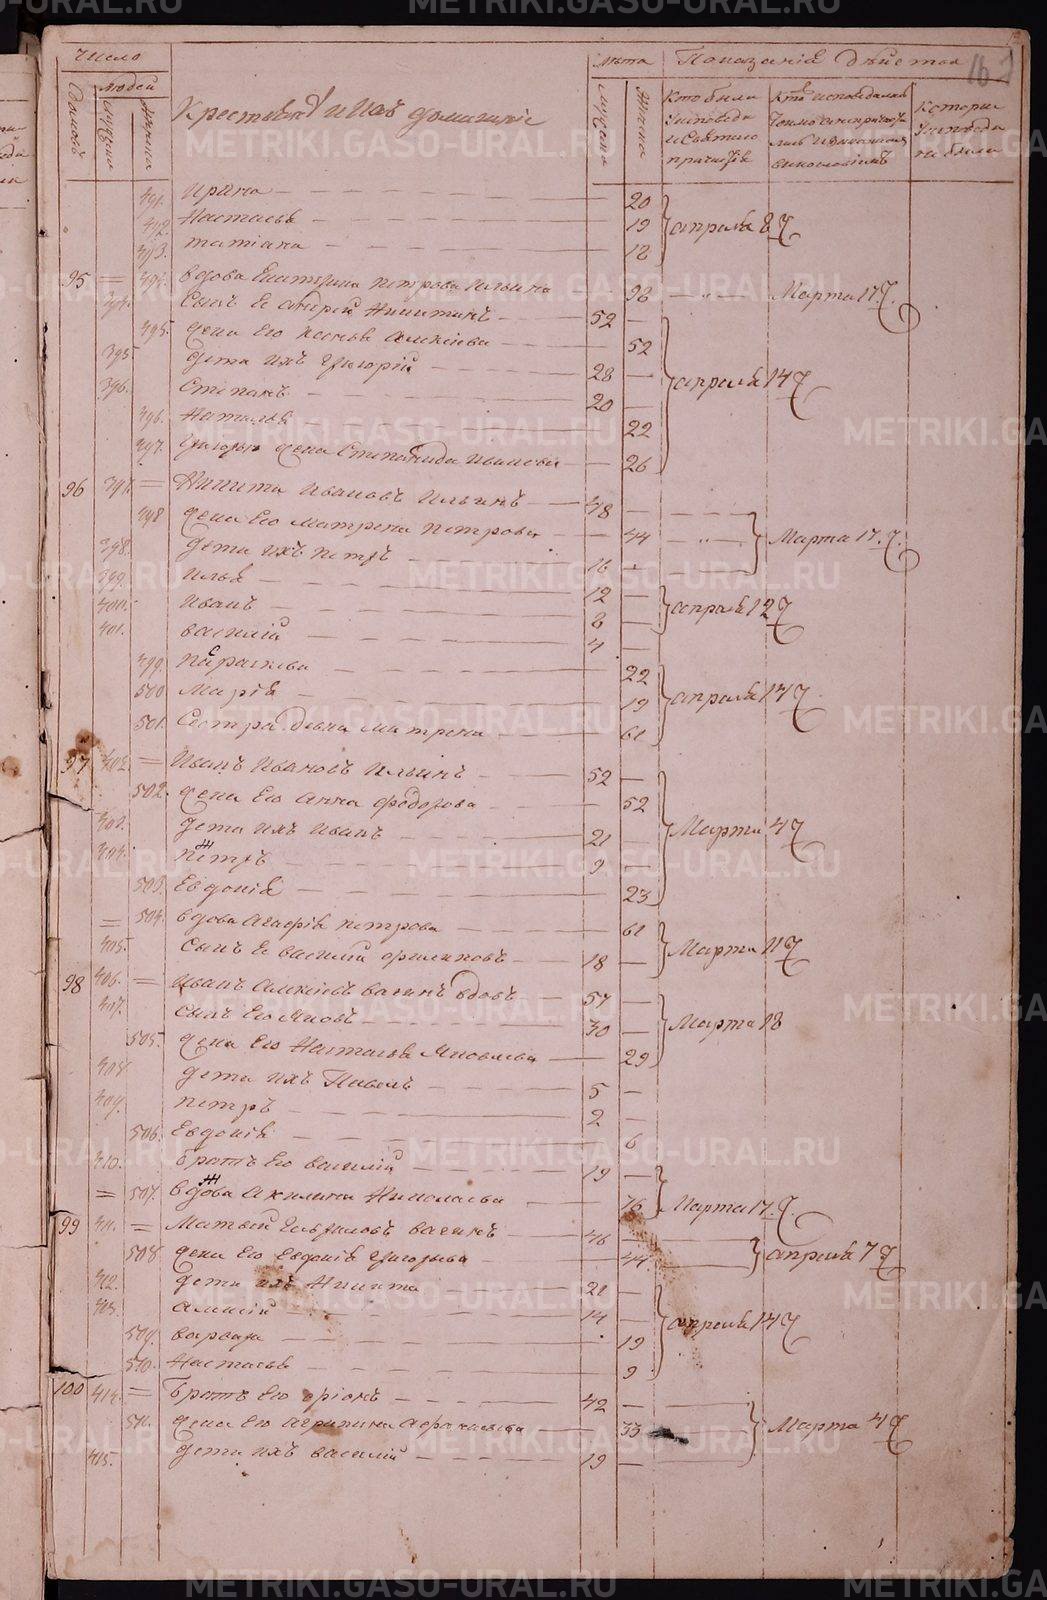 число
людей
домовъ
мужеска
женска
Крестьянѣ и Ихъ домашніе
лѣта
мужеска
женска
Показаніе дѣйства
Кто были у исповеди и Святаго причастія
Кто исповедался
которые у исповеди не были
491. Ирина — 20
492 Настасья — 19 апреля 8 Ч
493. татіана — 12
95 = 494. вдова Екатерина петрова Ильина 98 — „ — Марта 17. Ч.
394. Сынъ Ее андрей Никитинъ — 52 —
495. жена Его Алексеева — 52
395 дети Ихъ Григорій — 28 — апреля 14 Ч
396. Степанъ — 20 —
496. Наталья — 22
497. Григорью жена Степанида Иванова — 26
96 397. = Никита Ивановъ Ильинъ — 48 —
498 жена Его Матрена петрова — 44 — „ — Марта 17. Ч.
398. дети ихъ петръ — 16 —
399. Илья — 12 —
400. Иванъ — 8 — апреля 12 Ч
401. василій — 4 —
499. Параскева — 22
500 Марія — 19 апреля 14 Ч
501. Сестра девка матрена — 61
97 402. = Иванъ Ивановъ Ильинъ — 52 —
502. жена Его Анна федорова — 52
403. дети ихъ Иванъ — 21 Марта 4 Ч
404. петръ — 9
503. Евдокія — 23
= 504. вдова Агафія петрова — 61
405. сынъ Ее василій филиповъ — 18 — Марта 11 Ч
98 406. = Иванъ Алексеевъ вагинъ вдовъ — 57 —
407. сынъ Его Яковъ — 30 — Марта 18
505. жена Его Настасья Яковлева — 29
408. дети ихъ Павелъ — 5 —
409. петръ — 2 —
506. Евдокія — 6
410. братъ Его василій — 19 —
= 507. вдова Акилина Николаева — 76 Марта 17. Ч.
99 411. = Матвей Гавриловъ вагинъ — 46 —
508. жена Его Евдокія Григорьева — 44 апреля 7 Ч
412. дети ихъ Никита — 21 —
413. алексій — 14 — апреля 14 Ч
509. варвара — 19
510. Настасья — 9
100 414. = братъ Его — 42 —
511. жена Его Агрипина — 33 Марта 4 Ч
415. дети ихъ василій — 19 —
METRIKI.GASO-URAL.RU